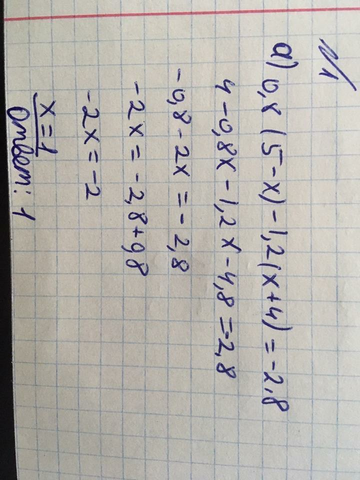 N1
а) 0,8 (5-x)-1,2(x+4)=-2,8
4-0,8x-1,2x-4,8=-2,8
-0,8-2x=-2,8
-2x=-2,8+0,8
-2x=-2
x=1
Ответ: 1